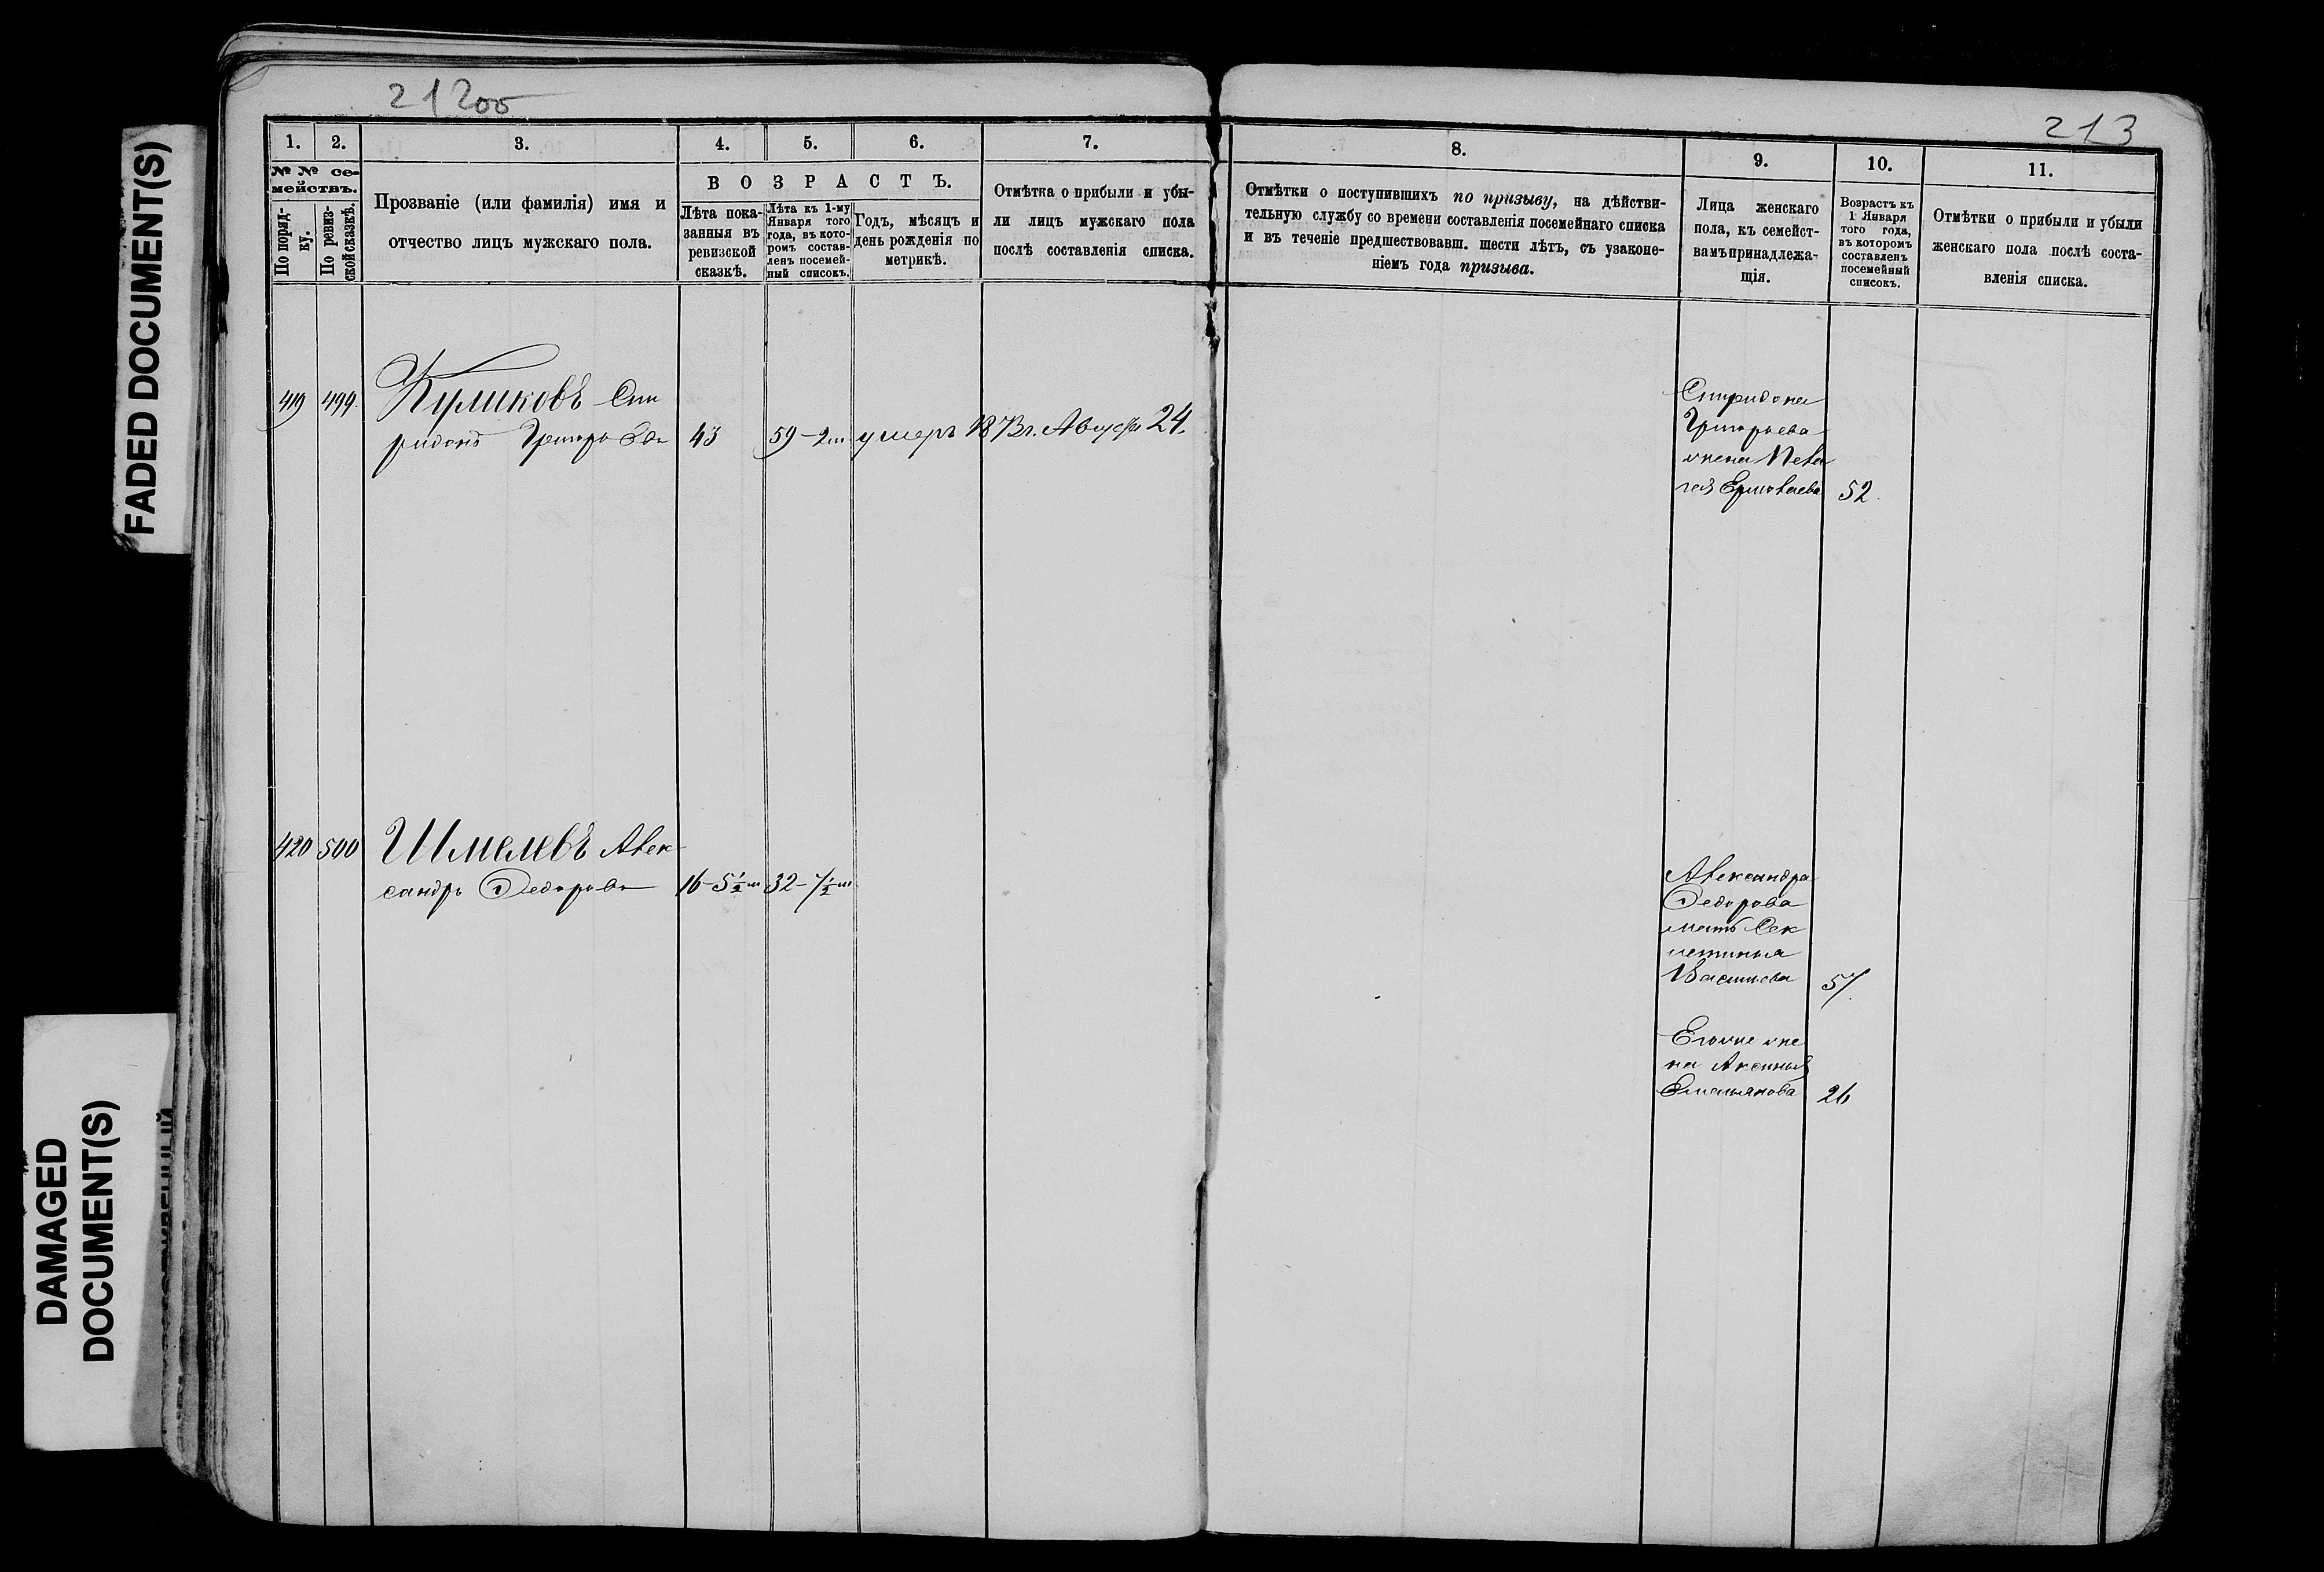 21200
213
FADED DOCUMENT(S)
DAMAGED
DOCUMENT(S)
1.
2.
3.
4.
5.
6.
7.
№ № се-
мействъ.
По поряд-
ку.
По ревиз-
ской сказкѣ.
Прозваніе (или фамилія) имя и
отчество лицъ мужскаго пола.
ВОЗРАСТЪ.
Лѣта пока-
занныя въ
ревизской
сказкѣ.
Лѣта къ 1-му
Января того
года, въ кото-
ромъ состав-
ленъ посемей-
ный списокъ.
Годъ, мѣсяцъ и
день рожденія по
метрикѣ.
Отмѣтка о прибыли и убы-
ли лицъ мужскаго пола
послѣ составленія списка.
8.
9.
10.
11.
Отмѣтки о поступившихъ по призыву, на дѣйстви-
тельную службу со времени составленія посемейнаго списка
и въ теченіе предшествовавш. шести лѣтъ, съ узаконе-
ніемъ года призыва.
Лица женскаго
пола, къ семейст-
вамъ принадлежа-
щія.
Возрастъ къ
1 Января
того года,
въ которомъ
составленъ
посемейный
списокъ.
Отмѣтки о прибыли и убыли
женскаго пола послѣ соста-
вленія списка.
419 499. Куликовъ Спи
ридонъ 43 59-2м умеръ 1873г. Августа 24.
Спиридона
Григорьева
жена Пела
гея 52.
420 500 Шмелевъ Алек-
сандръ Федоровъ 16-5½м 32-7½м
Александра
Федорова
мать Сек
летинья
Васильева 57.
Егоже же
на Аксинья
Емельянова 26